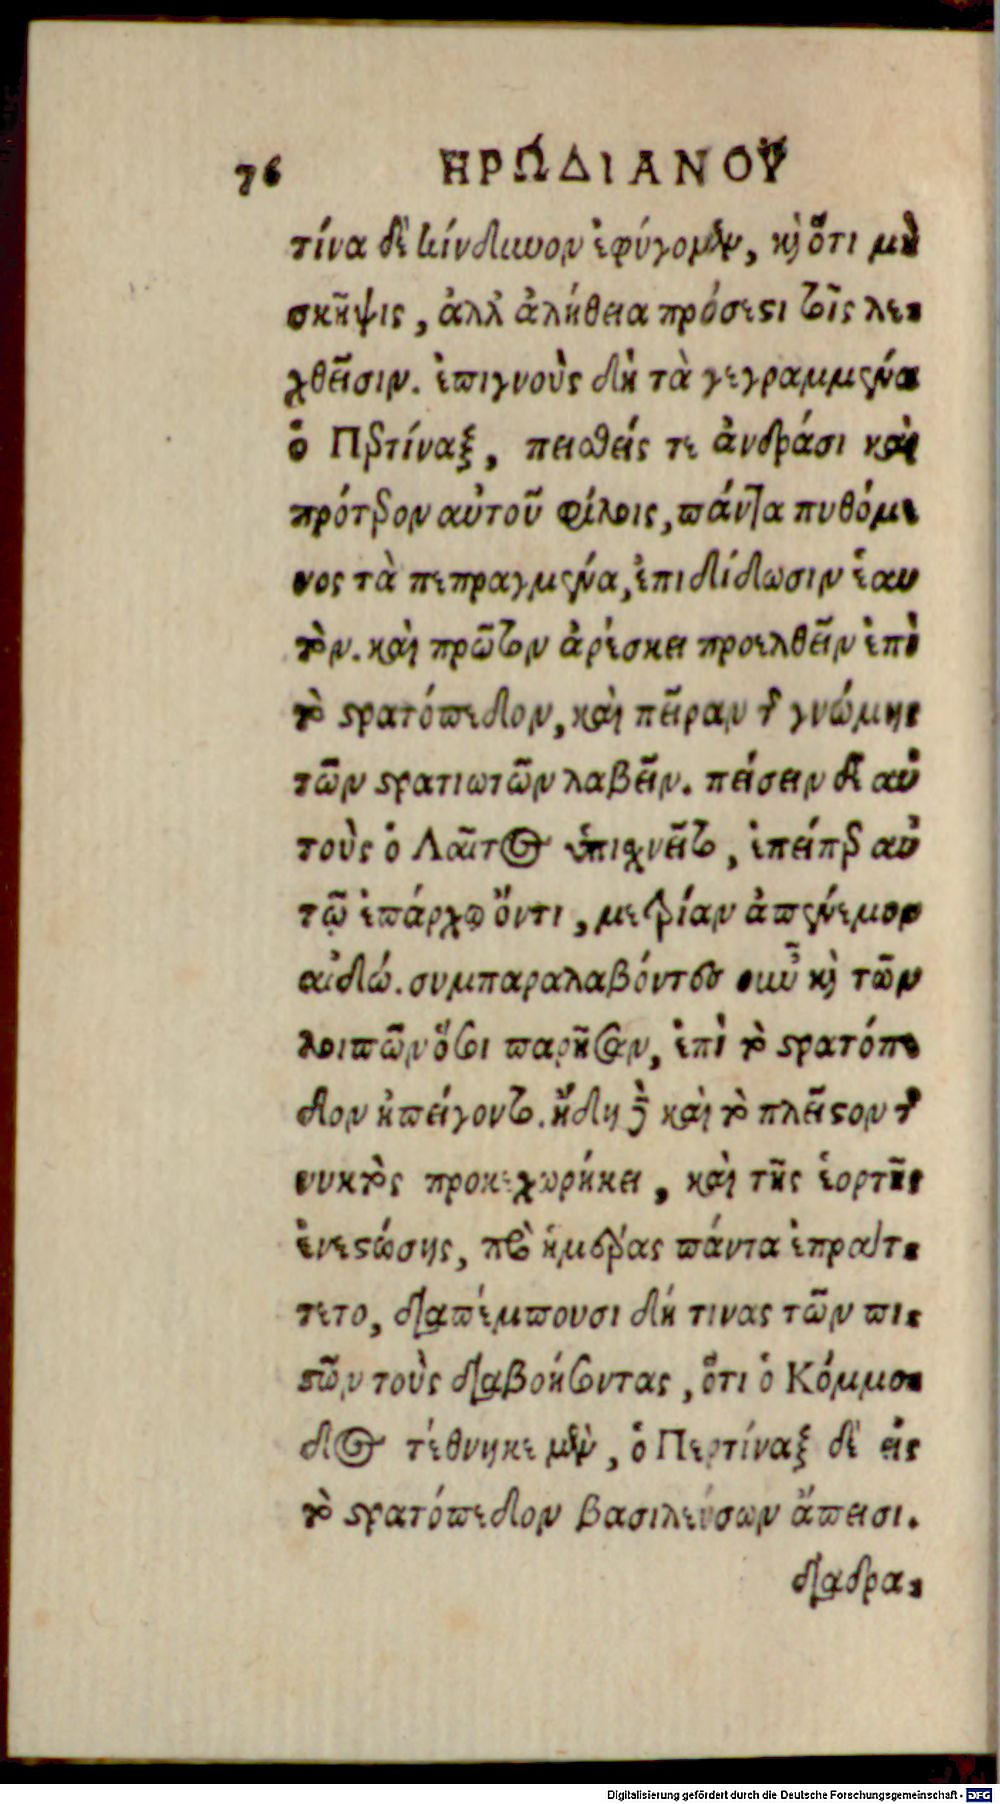 76 ΗΡΩΔΙΑΝΟΥ͂
τίνα δὲ κίνδυνον ἐφύγομεν, κὶ ὅτι μὴ
σκῆψις, ἀλλ' ἀλήθεια πρόσεστι τοῖς λε-
χθεῖσιν. ἐπιγνοὺς δὴ τὰ γεγραμμένα
ὁ Περτίναξ, πεισθείς τε ἀνδράσι καὶ
πρότερον αὐτοῦ φίλοις, πάντα πυθόμε
νος τὰ πεπραγμένα, ἐπιδίδωσιν ἑαυ
τὸν. καὶ πρῶτον ἀρέσκει προελθεῖν ἐπὶ
τὸ στρατόπεδον, καὶ πεῖραν τῆς γνώμης
τῶν στρατιωτῶν λαβεῖν. πείσειν δὲ αὐ
τοὺς ὁ Λαῖτος ὑπιχνεῖτο, ἐπείπερ αὐ
τῷ ἐπάρχῳ ὄντι, μετρίαν ἀπένεμον
αἰδώ. συμπαραλαβόντες οὖν κὶ τῶν
λοιπῶν ὅσοι παρῆσαν, ἐπὶ τὸ στρατόπε
δον ἠπείγοντο. ἤδη δὲ καὶ τὸ πλεῖστον τῆς
νυκτὸς προκεχωρήκει, καὶ τῆς ἑορτῆς
ἐνεστώσης, πρὸ ἡμέρας πάντα ἐπράτ-
τετο, διαπέμπουσι δή τινας τῶν πι-
στῶν τοὺς διαβοήσοντας, ὅτι ὁ Κόμμο-
δος τέθνηκε μὲν, ὁ Περτίναξ δὲ εἰς
τὸ στρατόπεδον βασιλεύσων ἄπεισι.
διαδρα-
Digitalisierung gefördert durch die Deutsche Forschungsgemeinschaft - DFG